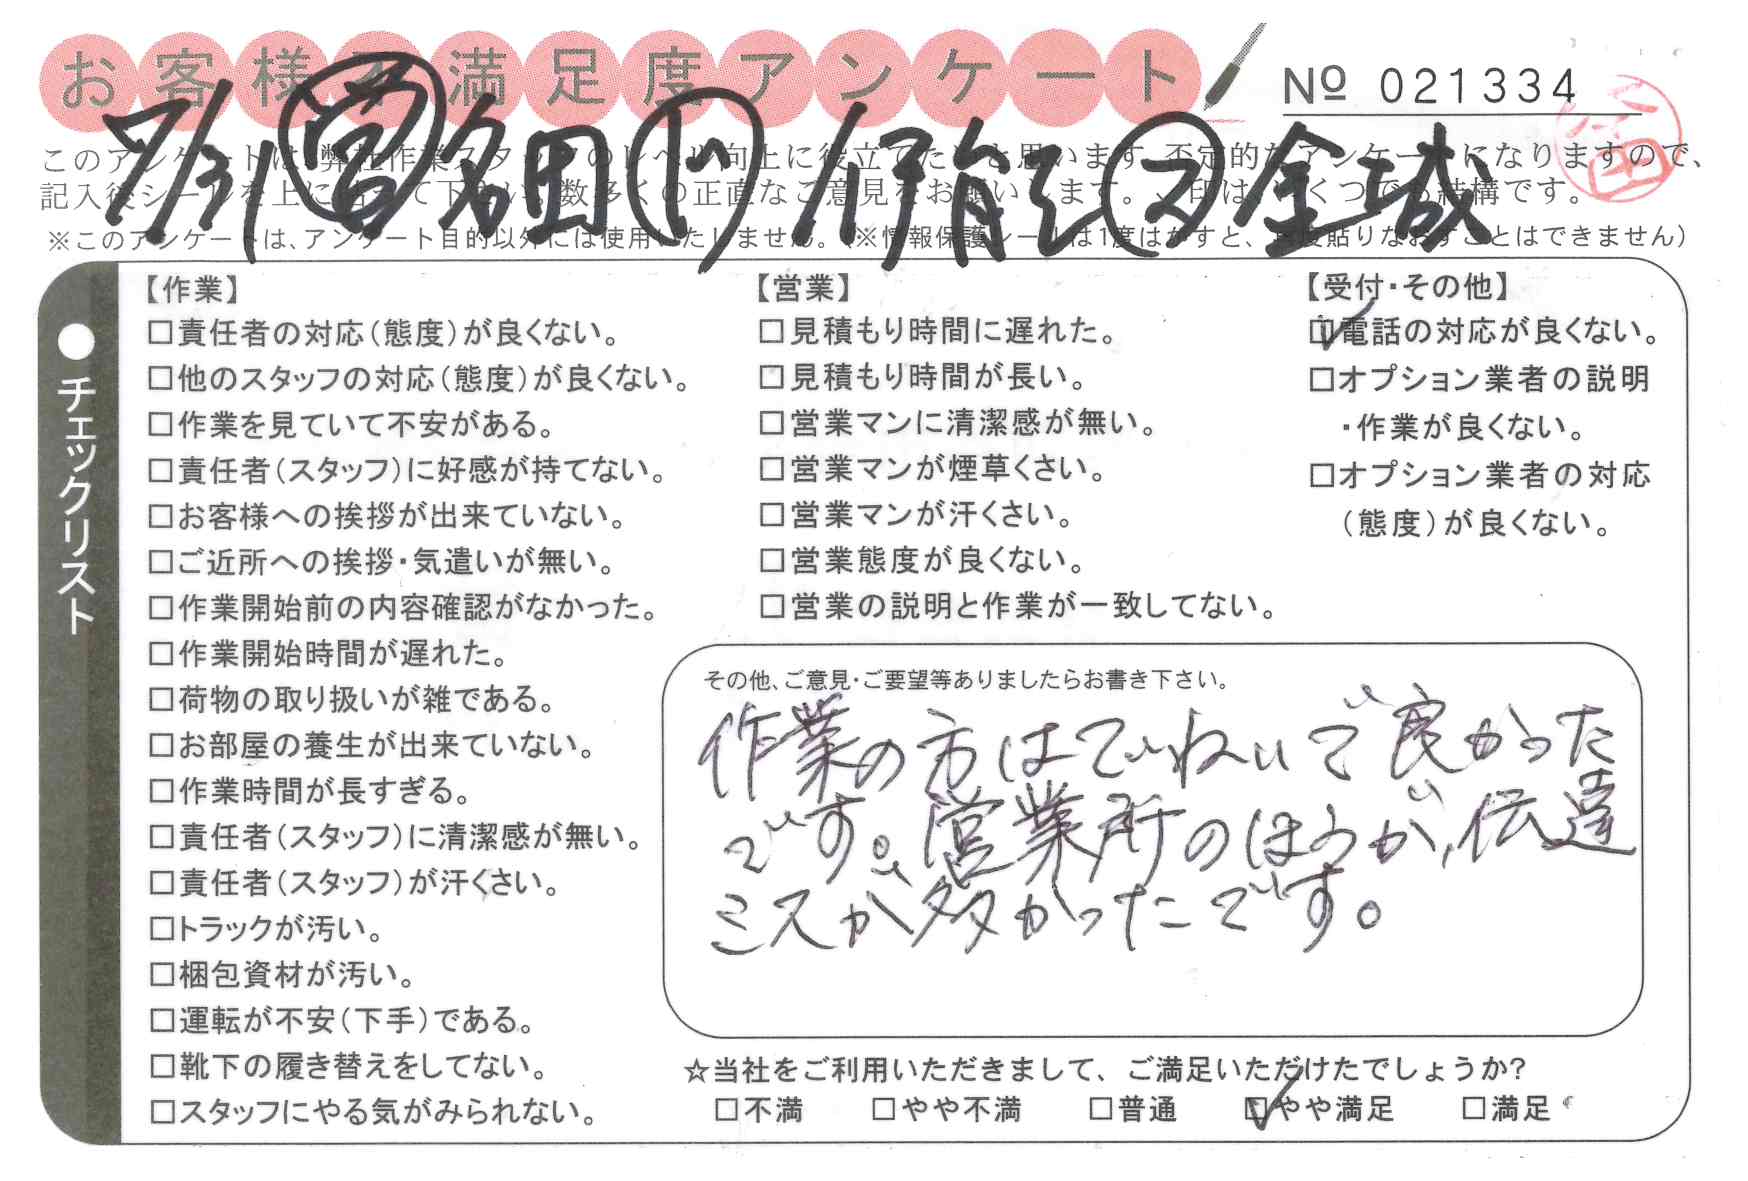 お客様不満足度アンケート
№ 021334
7/31 営 名田 ト 伊能 ス 金城
このアンケートは、弊社作業スタッフのレベル向上に役立てたいと思います。不定的なアンケートになりますので、
記入後シールを上に貼って下さい。数多くの正直なご意見をお願いします。✓印は、いくつでも結構です。
※このアンケートは、アンケート目的以外には使用いたしません。(※情報保護シールは1度はがすと、再度貼りなおすことはできません)
●チェックリスト
【作業】
□責任者の対応(態度)が良くない。
□他のスタッフの対応(態度)が良くない。
□作業を見ていて不安がある。
□責任者(スタッフ)に好感が持てない。
□お客様への挨拶が出来ていない。
□ご近所への挨拶・気遣いが無い。
□作業開始前の内容確認がなかった。
□作業開始時間が遅れた。
□荷物の取り扱いが雑である。
□お部屋の養生が出来ていない。
□作業時間が長すぎる。
□責任者(スタッフ)に清潔感が無い。
□責任者(スタッフ)が汗くさい。
□トラックが汚い。
□梱包資材が汚い。
□運転が不安(下手)である。
□靴下の履き替えをしてない。
□スタッフにやる気がみられない。
【営業】
□見積もり時間に遅れた。
□見積もり時間が長い。
□営業マンに清潔感が無い。
□営業マンが煙草くさい。
□営業マンが汗くさい。
□営業態度が良くない。
□営業の説明と作業が一致してない。
【受付・その他】
☑電話の対応が良くない。
□オプション業者の説明
・作業が良くない。
□オプション業者の対応
(態度)が良くない。
その他、ご意見・ご要望等ありましたらお書き下さい。
作業の方はていねいで良かった
です。営業所のほうが、伝達
ミスが多かったです。
☆当社をご利用いただきまして、ご満足いただけたでしょうか?
□不満 □やや不満 □普通 ☑やや満足 □満足